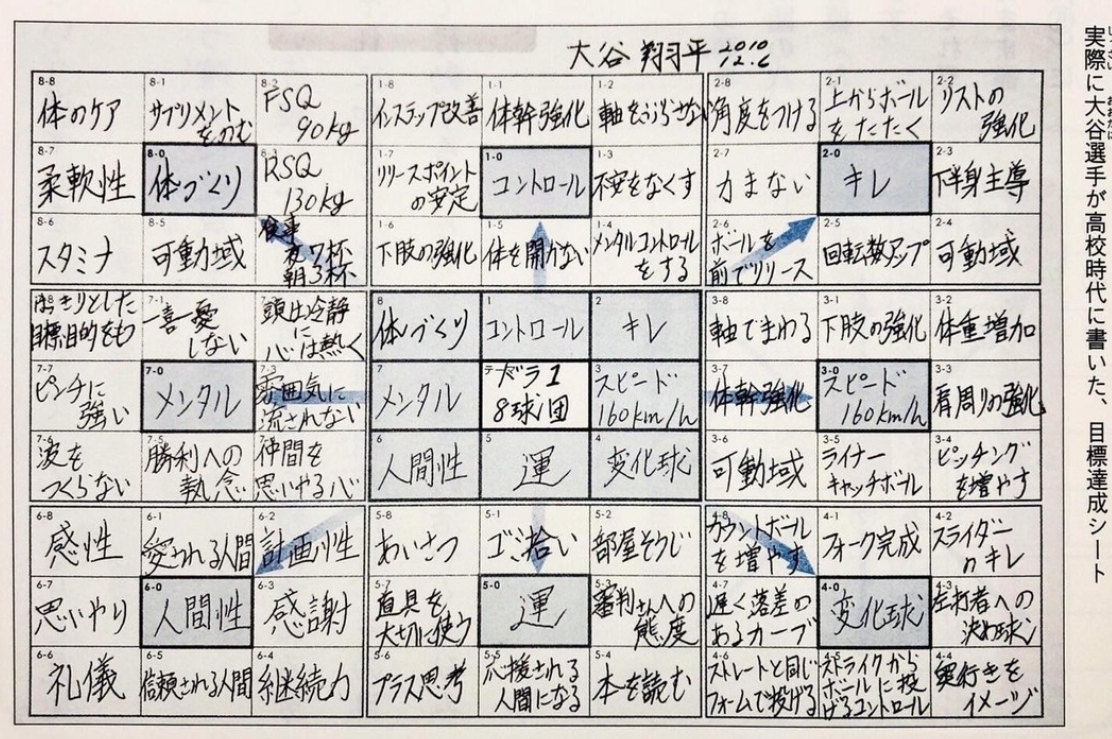 大谷翔平 2010 12.6
8-8 体のケア
8-1 サプリメントをのむ
8-2 FSQ 90kg
8-7 柔軟性
8-0 体づくり
8-3 RSQ 130kg
8-6 スタミナ
8-5 可動域
食事 夜7杯 朝3杯
1-8 インステップ改善
1-1 体幹強化
1-2 軸をぶらさない
1-7 リリースポイントの安定
1-0 コントロール
1-3 不安をなくす
1-6 下肢の強化
1-5 体を開かない
1-4 メンタルコントロールをする
2-8 角度をつける
2-1 上からボールをたたく
2-2 リストの強化
2-7 力まない
2-0 キレ
2-3 下半身主導
2-6 ボールを前でリリース
2-5 回転数アップ
2-4 可動域
7-8 はっきりとした目標、目的をもつ
7-1 一喜一憂しない
頭は冷静に心は熱く
7-7 ピンチに強い
7-0 メンタル
7-3 雰囲気に流されない
7-6 波をつくらない
7-5 勝利への執念
仲間を思いやる心
8 体づくり
1 コントロール
2 キレ
7 メンタル
テーマ ドラ1 8球団
3 スピード 160km/h
6 人間性
5 運
4 変化球
3-8 軸でまわる
3-1 下肢の強化
3-2 体重増加
3-7 体幹強化
3-0 スピード 160km/h
3-3 肩周りの強化
3-6 可動域
3-5 ライナーキャッチボール
3-4 ピッチングを増やす
6-8 感性
6-1 愛される人間
6-2 計画性
6-7 思いやり
6-0 人間性
6-3 感謝
6-6 礼儀
6-5 信頼される人間
6-4 継続力
5-8 あいさつ
5-1 ゴミ拾い
5-2 部屋そうじ
5-7 道具を大切に使う
5-0 運
5-3 審判さんへの態度
5-6 プラス思考
5-5 応援される人間になる
5-4 本を読む
4-8 カウントボールを増やす
4-1 フォーク完成
4-2 スライダーのキレ
4-7 遅く落差のあるカーブ
4-0 変化球
4-3 左打者への決め球
4-6 ストレートと同じフォームで投げる
4-5 ストライクからボールに投げるコントロール
4-4 奥行きをイメージ
実際に大谷選手が高校時代に書いた、目標達成シート